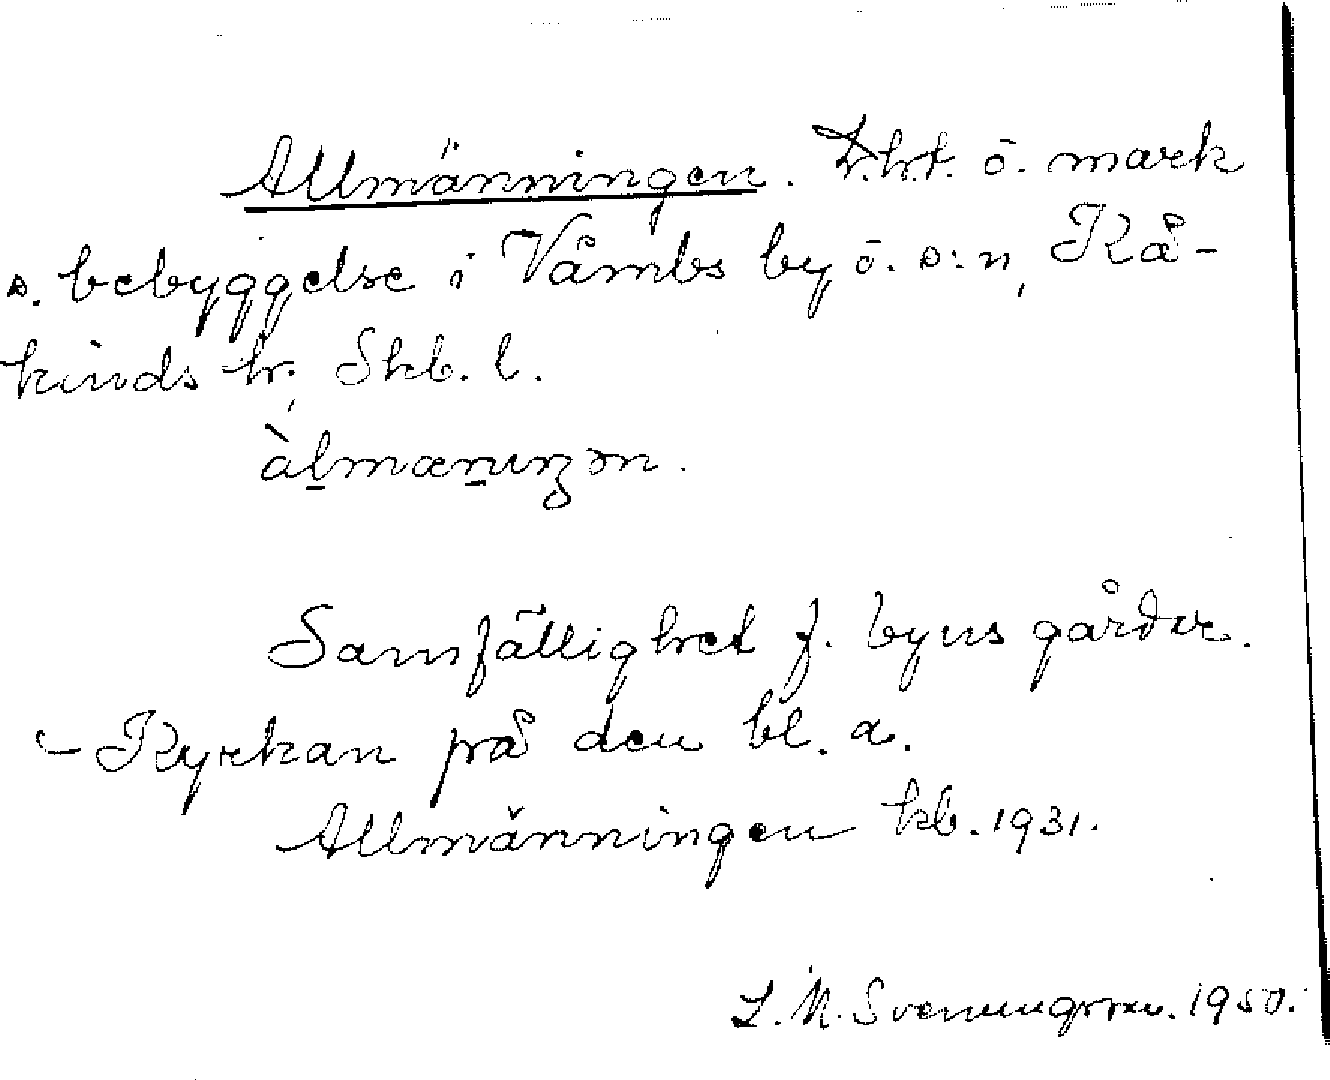 Allmänningen. ö. mark
s. bebyggelse i Våmbs by ö. s:n, Kå-
kinds hr, Skb. l.
àl̠mæn̠ıŋən.
Samfällighet f. byns gårdar.
– Kyrkan på den bl. a.
Allmänningen kb. 1931.
L. M. Svenungsson. 1950.